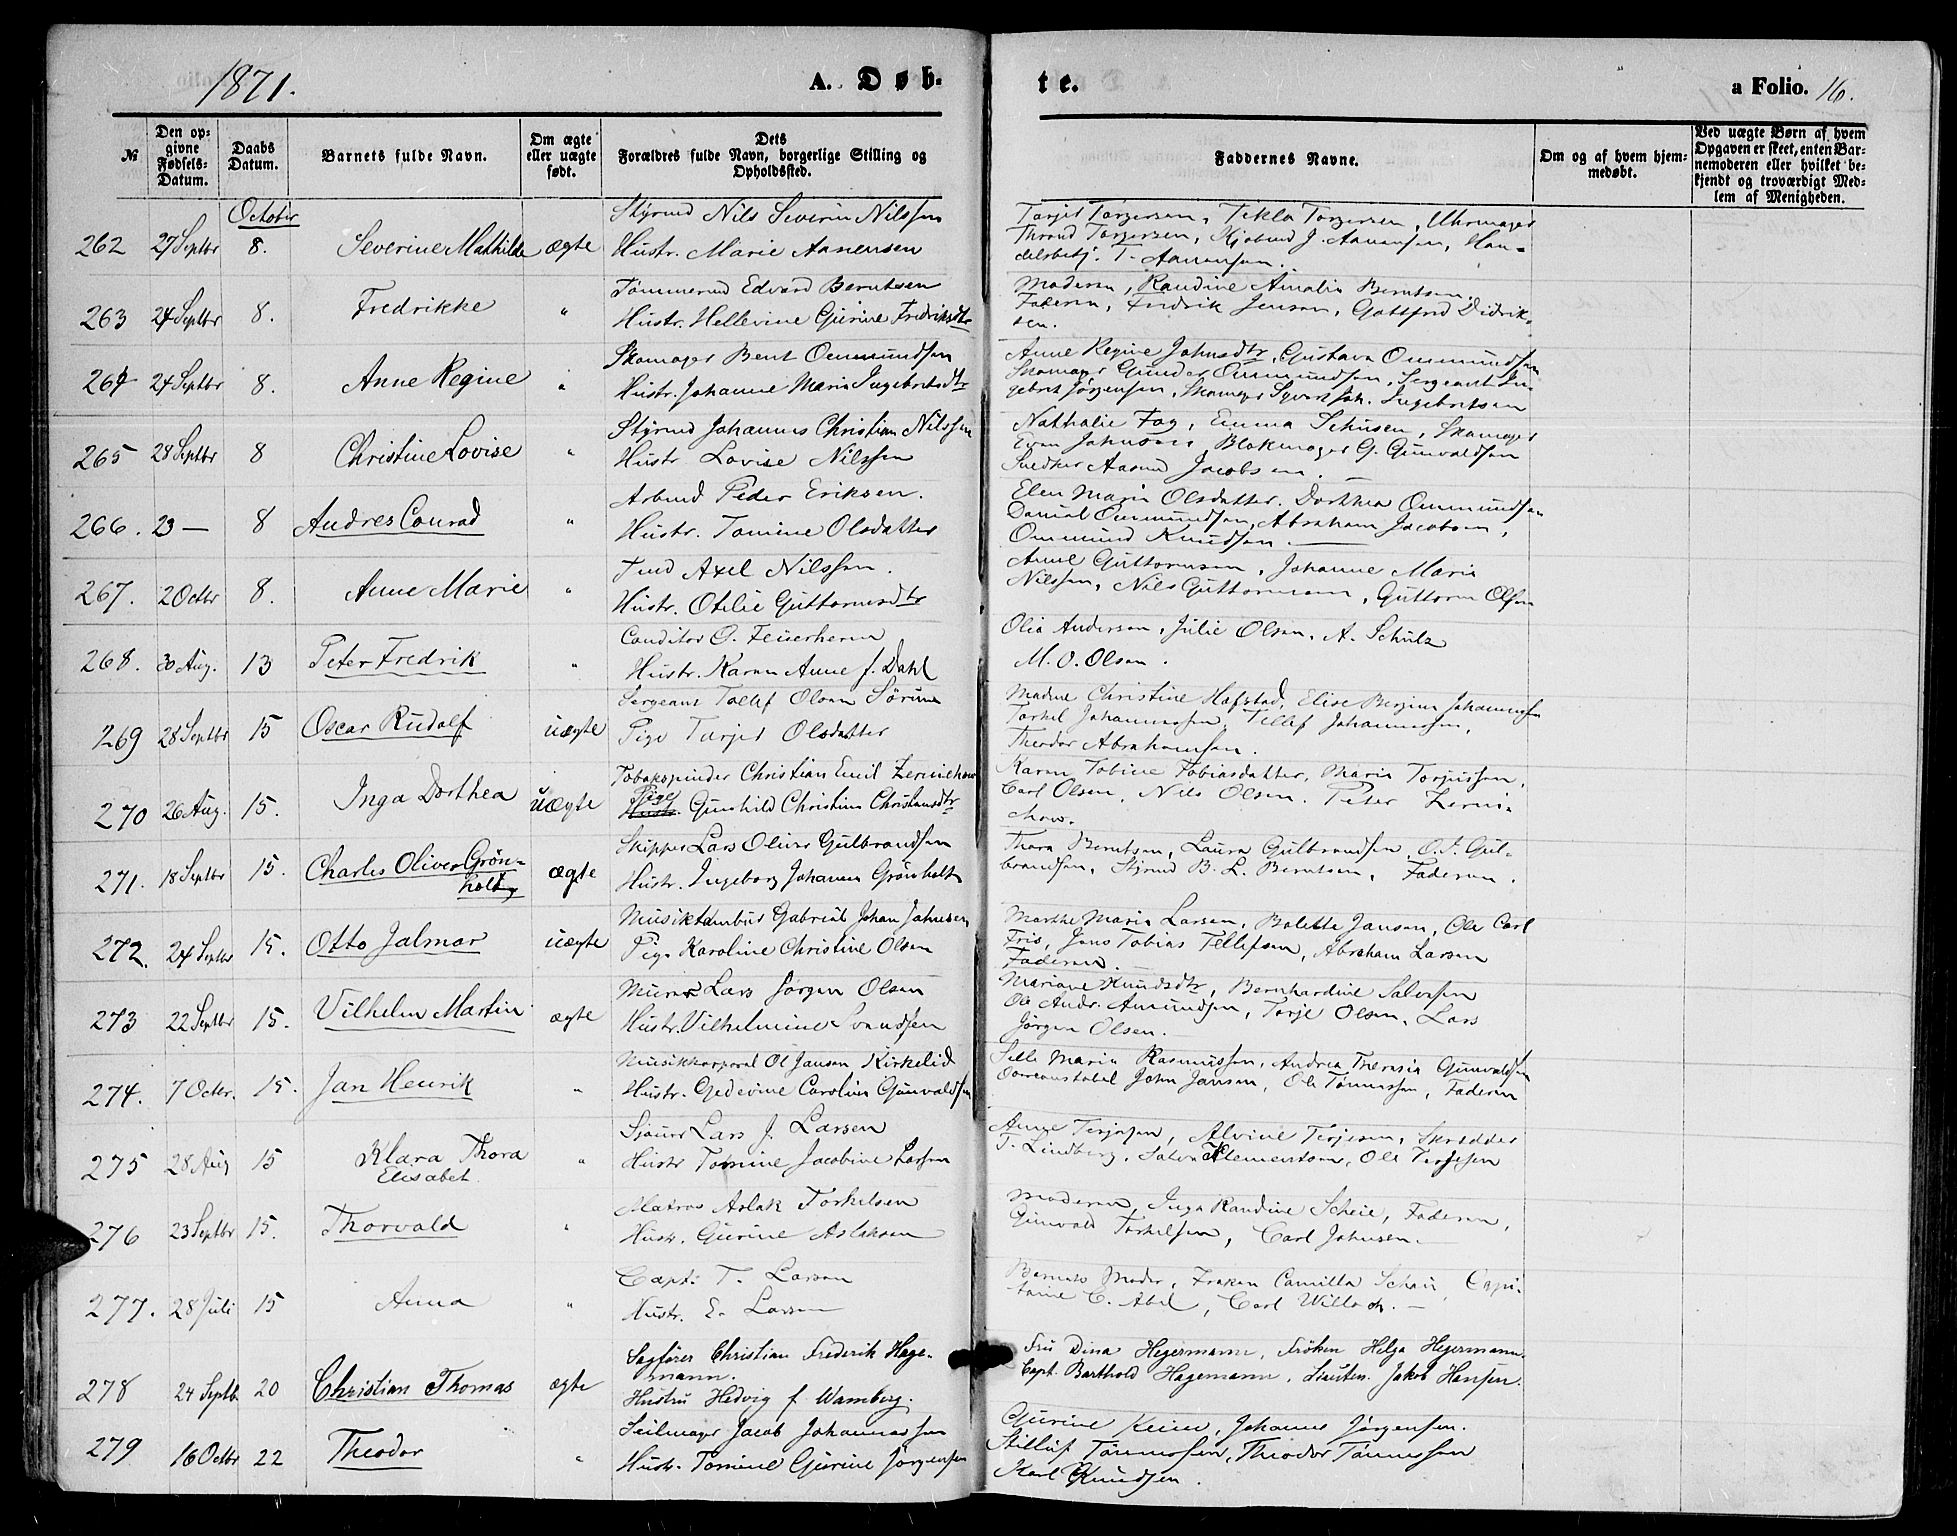 1871.
A. Døb-
te.
a Folio. 16.
№
Den op-
givne
Fødsels-
Datum.
Daabs
Datum.
Barnets fulde Navn.
Om ægte
eller uægte
født.
Dets
Forældres fulde Navn, borgerlige Stilling og
Opholdssted.
Faddernes Navne.
Om og af hvem hjem-
medøbt.
Ved uægte Børn af hvem
Opgaven er skeet, enten Bar-
nemoderen eller hvilket be-
kjendt og troværdigt Med-
lem af Menigheden.
October
262 27 Septbr 8. Severine Mathilde ægte
Styrmd Nils Severin Nilssen
Hustr. Marie Aanensen
Tarjei Torgersen, Tekla Torgersen, Uhrmager
Thrond Torgersen, J. Aanensen, Han-
delsbetj. T. Aanensen.
263 24 Septbr 8. Fredrikke "
Tømmermd Edvard Berntsen
Hustr. Hellevine Gurine Fredriksdtr
Moderen, Randine Amalia Berntsen,
Faderen, Fredrik Jensen, Gottfred Didrik-
sen.
264 24 Septbr 8. Anne Regine "
Skomager Bent Ommundsen
Hustr. Johanne Marie Ingebretsdtr
Anne Regine Johnsdtr, Gustava Ommundsen
Skomager Gunder Ommundsen, Sergeant In-
gebret Jørgensen, Skomager Ingebretsen
265 28 Septbr 8 Christine Lovise "
Styrmd Johannes Christian Nilssen
Hustr Lovise Nilssen
Nathalie Fog, Emma Schusen, Skomager
Even Johnsen, Blokmager G. Gunvaldsen
Snedker Aasmd Jacobsen.
266. 23 — 8 Andres Conrad "
Arbmd Peder Eriksen.
Hustr. Tomine Olsdatter
Elen Maria Olsdatter, Dorthea Ommundsen
Daniel Ommundsen, Abraham Jacobsen,
Ommund Knudsen.
267. 2 Octbr 8. Anne Marie "
Axel Nilssen.
Hustr. Otilie Guttormsdtr
Anne Guttormsen, Johanne Marie
Nilssen, Nils Guttormsen, Guttorm Olsen
268. 30 Aug. 13 Peter Fredrik "
Conditor O. Feuerherm
Hustr. Karen Anne f. Dahl
Olia Andersen, Julie Olsen, A. Schulz
M. O. Olsen.
269 28 Septbr 15 Oscar Rudolf uægte
Sergeant Tellef Olsen
Pige Tarjer Olsdatter
Madme Christine Hafstad, Elise Bergine Johannessen
Torkel Johannessen, Tellef Johannessen,
Theodor Abrahamsen.
270 26 Aug. 15. Inga Dorthea uægte
Tobakspinder Christian Emil Zernichow
Pige Gunhild Christine Christensdtr
Karen Tobine Tobiasdatter, Marie Torjussen,
Carl Olsen, Nils Olsen. Peter Zerni-
chow.
271. 18 Septbr 15. Charles Oliver Grøn-
holt ægte
Skipper Lars Oliver Gulbrandsen
Hustr. Ingeborg Johanne Grønholt
Thora Berntsen, Laura Gulbrandsen, O. S. Gul-
brandsen, Styrmd B. L. Berntsen, Faderen.
272. 24 Septbr 15. Otto Jalmar uægte
Musiktambur Gabriel Johan Johnsen
Pige Karoline Christine Olsen
Marthe Marie Larsen, Bolette Jansen, Ole Carl
Friis, Jens Tobias Tellefsen, Abraham Larsen
Faderen.
273 22 Septbr 15. Vilhelm Martin ægte
Murer Lars Jørgen Olsen
Hustr. Vilhelmine Svendsen
Mariane Knudsdtr, Bernhardine Salvesen
Ole Andr. Amundsen, Torje Olsen, Lars
Jørgen Olsen.
274. 7 Octbr. 15. Jan Henrik "
Musikkorporal Ol Jansen Kirkelid
Hustr. Gedevine Caroline Gunvaldsen
Sille Maria Rasmussen, Andrea Theresia Gunvaldsen
Overconstabel John Jansen, Ole Tønnessen, Faderen
275 28 Aug 15 Klara Thora
Elisabet "
Sjouer Lars J. Larsen
Hustr Tomine Jacobine Larsen
Anne Terjesen, Alvine Terjesen, Skrædder
T. Lindberg, Salve Klementsen, Ole Terjesen
276 23 Septbr 15. Thorvald "
Matros Aslak Torkelsen
Hustr. Gurine Aslaksen
Moderen, Inga Randine Scheie, Faderen,
Gunvald Torkelsen, Carl Johnsen.
277. 28 Juli 15 Anna "
Capt. T. Larsen
Hustr. E. Larsen
Barnets Moder, Frøken Camilla Scheie, Capi-
taine C. Abel, Carl Willoch. —
278 24 Septb. 20 Christian Thomas ægte
Sagfører Christian Frederik Hage-
mann.
Hustru Hedvig f. Wamberg.
Fru Dina Hegermann, Frøken Helga Hegermann.
Capt. Barthold Hagemann, Lieuten. Jakob Hansen.
279 16 Octbr 22 Theodor "
Seilmager Jacob Johannessen
Hustr. Tomine Gurine Jørgensen
Gurine, Johanne Jørgensen.
Tønnessen, Theodor Tønnessen
Karl Knudsen.